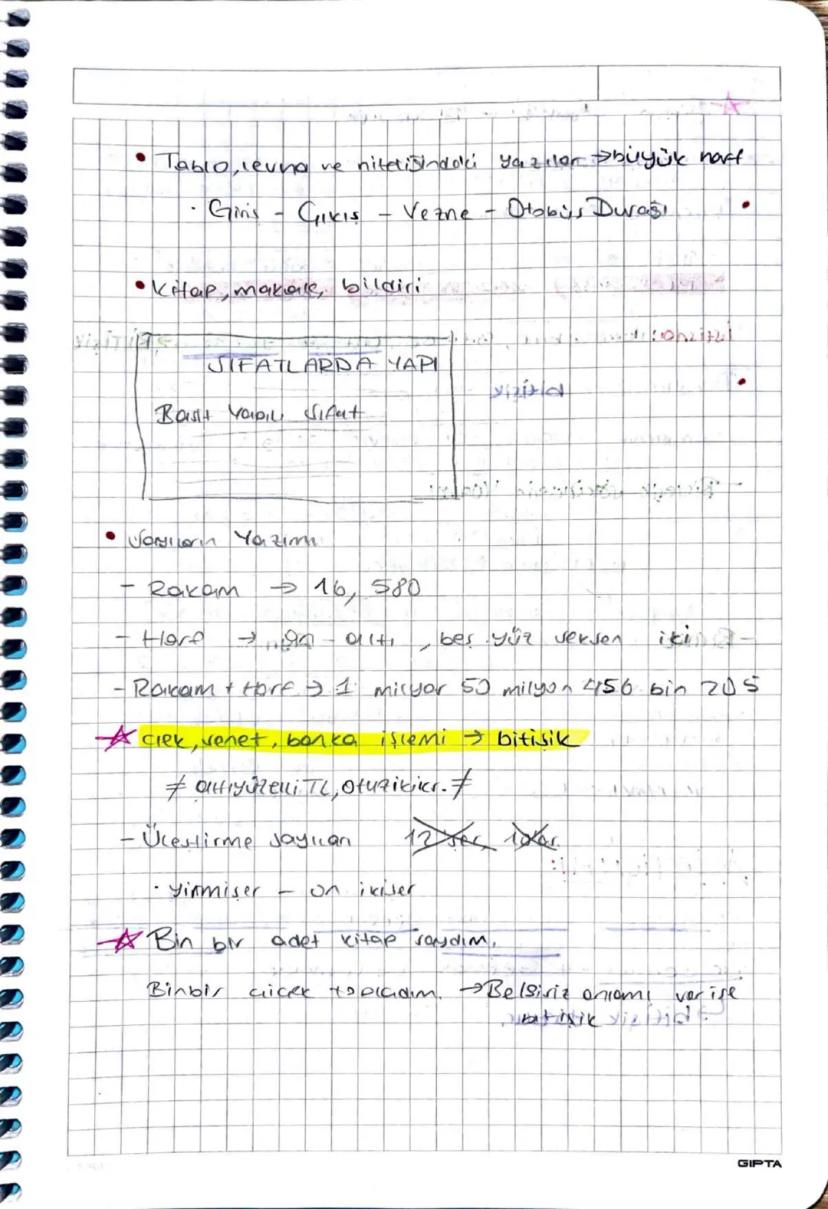 • Tablo, levha ve niteliğindeki yazılar → büyük harf
· Giriş - Çıkış - Vezne - Otobüs Durağı
• Kitap, makale, bildiri
SIFATLARDA YAPI
Basit Yapılı Sıfat
• Sayıların Yazımı
- Rakam → 16, 580
- Harf → on - altı, beş yüz seksen iki
- Rakam + Harf → 1 milyar 50 milyon 456 bin 205
☆ çek, senet, banka işlemi → bitişik
≠ altıyüzelli TL, otuzikikr. ≠
- Üleştirme sayıları 12şer, 10ar
· yirmişer - on ikişer
☆ Bin bir adet kitap saydım.
Binbir çiçek topladım. → Belgisiz anlamı var ise
bitişik
GIPTA